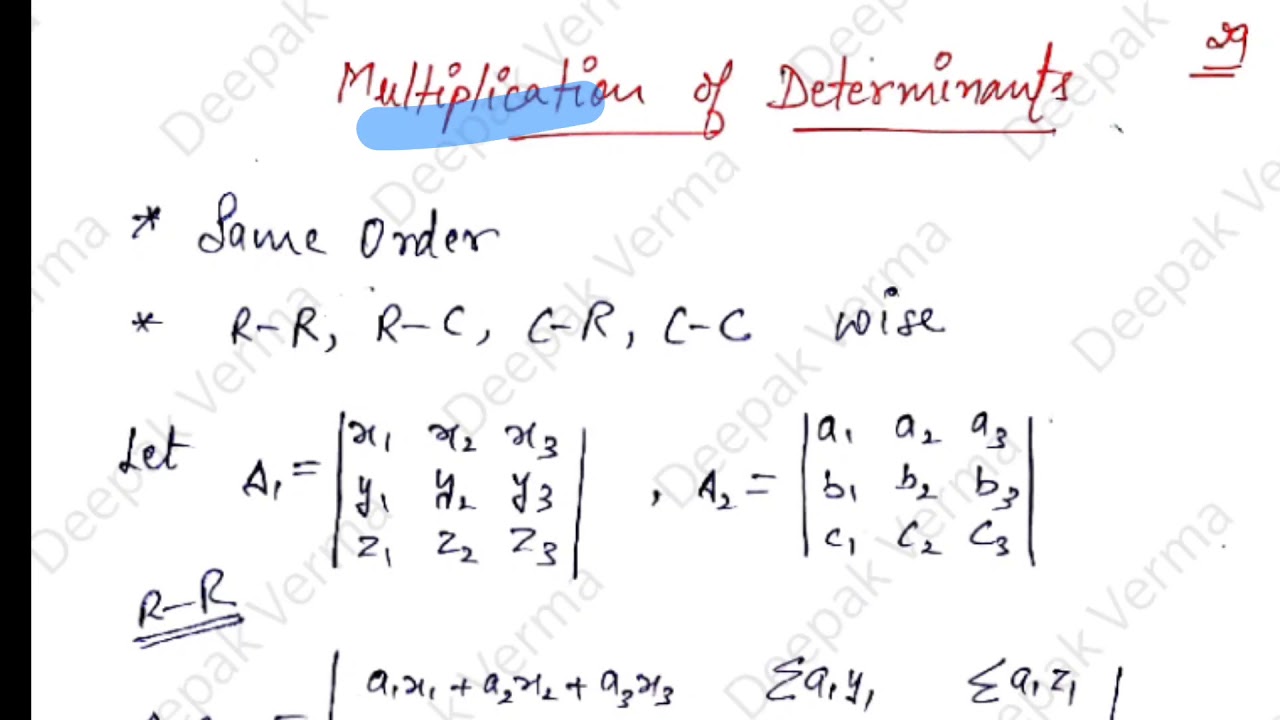 Multiplication of Determinants
29
* Same Order
* R-R, R-C, C-R, C-C wise
Let Δ₁ = | x₁ x₂ x₃ | , Δ₂ = | a₁ a₂ a₃ |
| y₁ y₂ y₃ | | b₁ b₂ b₃ |
| z₁ z₂ z₃ | | c₁ c₂ c₃ |
R-R
= | a₁x₁ + a₂x₂ + a₃x₃ Σa₁y₁ Σa₁z₁ |
Deepak Verma